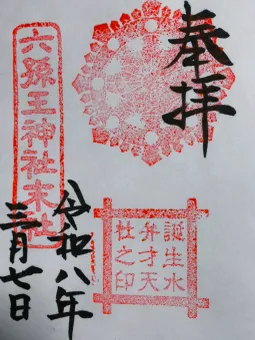 奉拝
六孫王神社末社
誕生水
弁才天
社之印
令和八年
三月七日